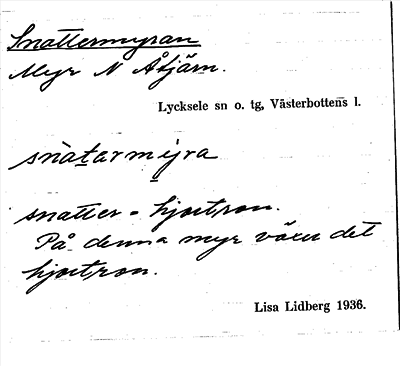 Snattermyran
Myr N Åtjärn.
Lycksele sn o. tg, Västerbottens l.
snàtarmy̱ra
snatter = hjortron.
På denna myr växer det
hjortron.
Lisa Lidberg 1936.